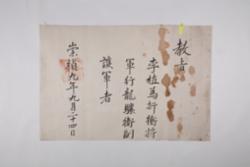 教旨
李植爲折衝將
軍行龍驤衛副
護軍者
崇禎九年九月二十四日